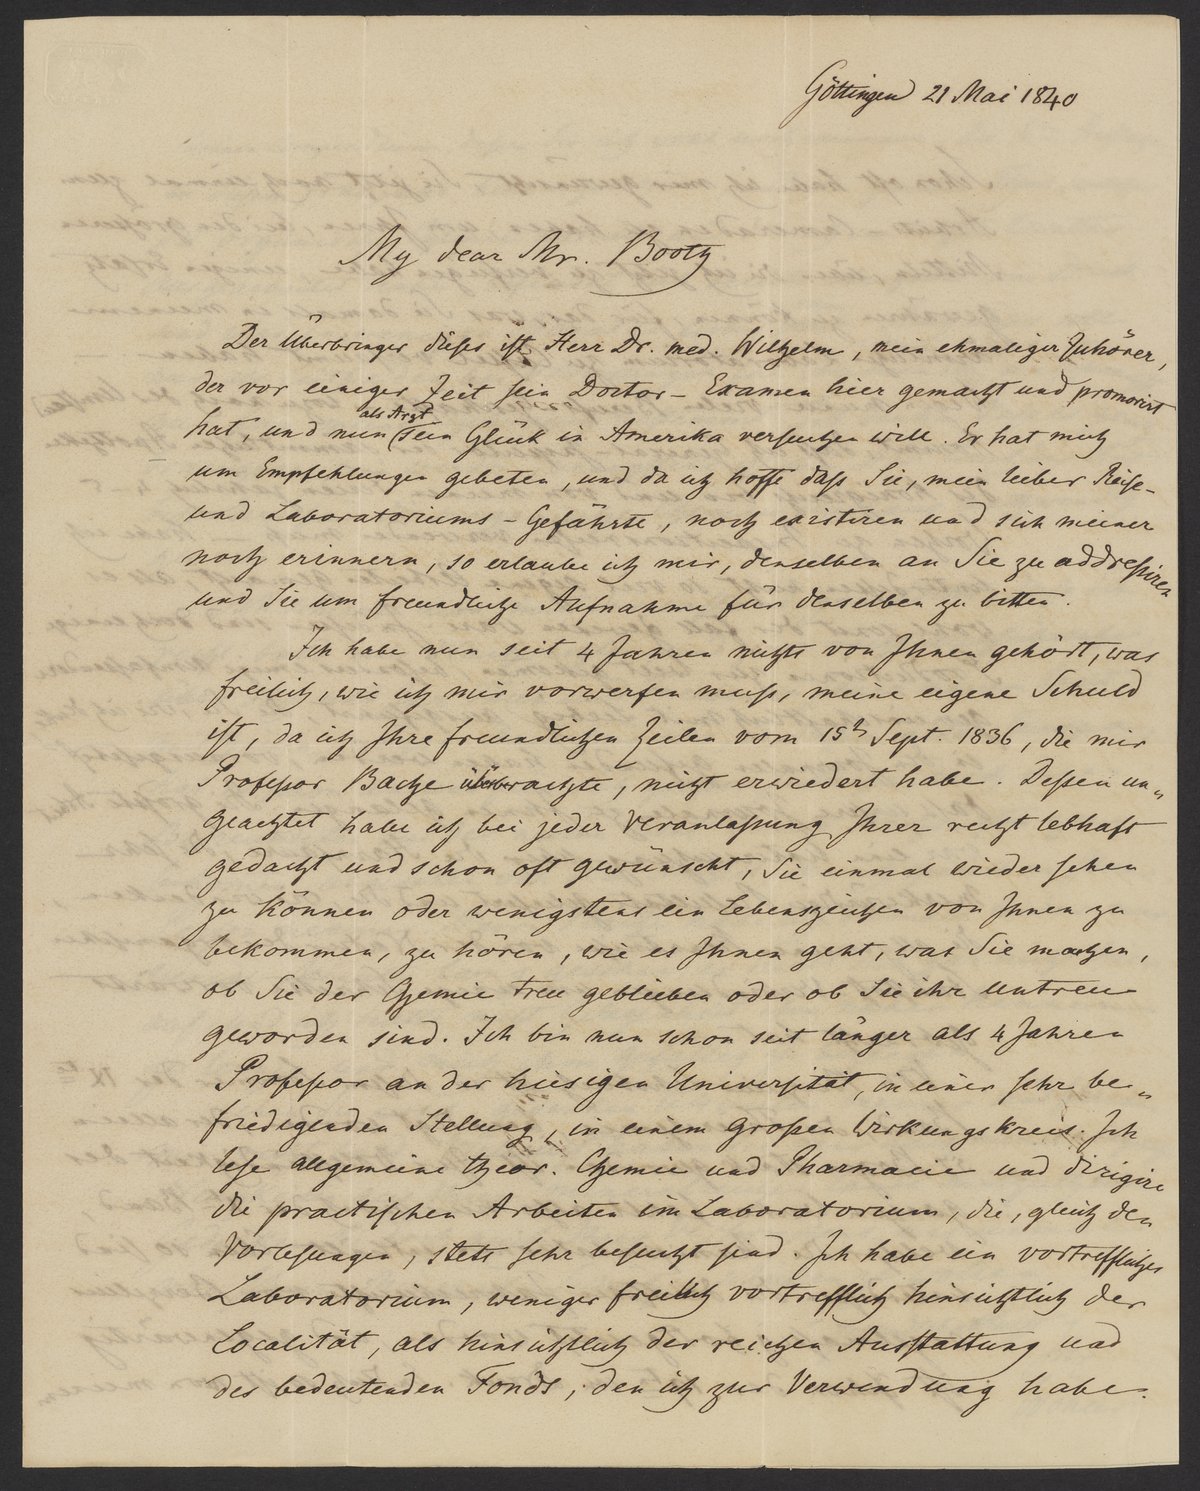 Göttingen 21 Mai 1840
My dear Mr. Booth
Der Überbringer dieses ist Herr Dr. med. Wilhelm, mein ehmaliger Zuhörer,
der vor einiger Zeit sein Doctor-Examen hier gemacht und promovirt
als Arzt
hat, und nun sein Glück in Amerika versuchen will. Er hat mich
um Empfehlungen gebeten, und da ich hoffe dass Sie, mein lieber Reise-
und Laboratoriums-Gefährte, noch existiren und sich meiner
noch erinnern, so erlaube ich mir, denselben an Sie zu addressiren
und Sie um freundliche Aufnahme für denselben zu bitten.
Ich habe nun seit 4 Jahren nichts von Ihnen gehört, was
freilich, wie ich mir vorwerfen muss, meine eigene Schuld
ist, da ich Ihre freundlichen Zeilen vom 15t Sept. 1836, die mir
Professor Bache überbrachte, nicht erwiedert habe. Dessen un„
geachtet habe ich bei jeder Veranlassung Ihrer recht lebhaft
gedacht und schon oft gewünscht, Sie einmal wieder sehen
zu können oder wenigstens ein Lebenszeichen von Ihnen zu
bekommen, zu hören, wie es Ihnen geht, was Sie machen,
ob Sie der Chemie treu geblieben oder ob Sie ihr untreu
geworden sind. Ich bin nun schon seit länger als 4 Jahren
Professor an der hiesigen Universität, in einer sehr be„
friedigenden Stellung, in einem grossen Wirkungskreis. Ich
lese allgemeine theor. Chemie und Pharmacie und dirigire
die practischen Arbeiten im Laboratorium, die, gleich den
Vorlesungen, stets sehr besucht sind. Ich habe ein vortreffliches
Laboratorium, weniger freilich vortrefflich hinsichtlich der
Localität, als hinsichtlich der reichen Ausstattung und
des bedeutenden Fonds, den ich zur Verwendung habe.